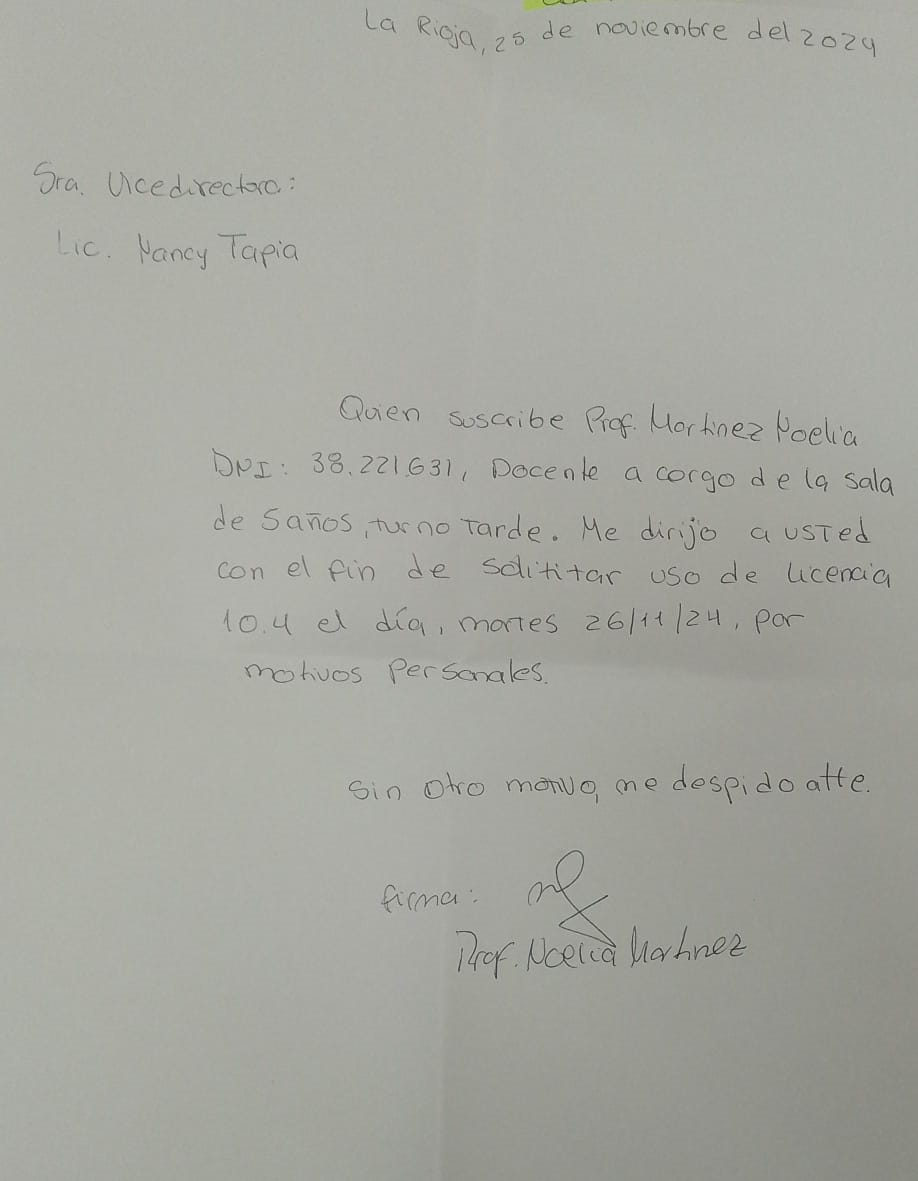 La Rioja, 25 de noviembre del 2024
Sra. Vicedirectora:
Lic. Nancy Tapia
Quien suscribe Prof. Martinez Noelia
DNI: 38.221.631, Docente a cargo de la sala
de 5 años, turno Tarde. Me dirijo a usted
con el fin de solititar uso de licencia
10.4 el día, martes 26/11/24, por
motivos Personales.
Sin otro motivo, me despido atte.
firma:
Prof. Noelia Martinez